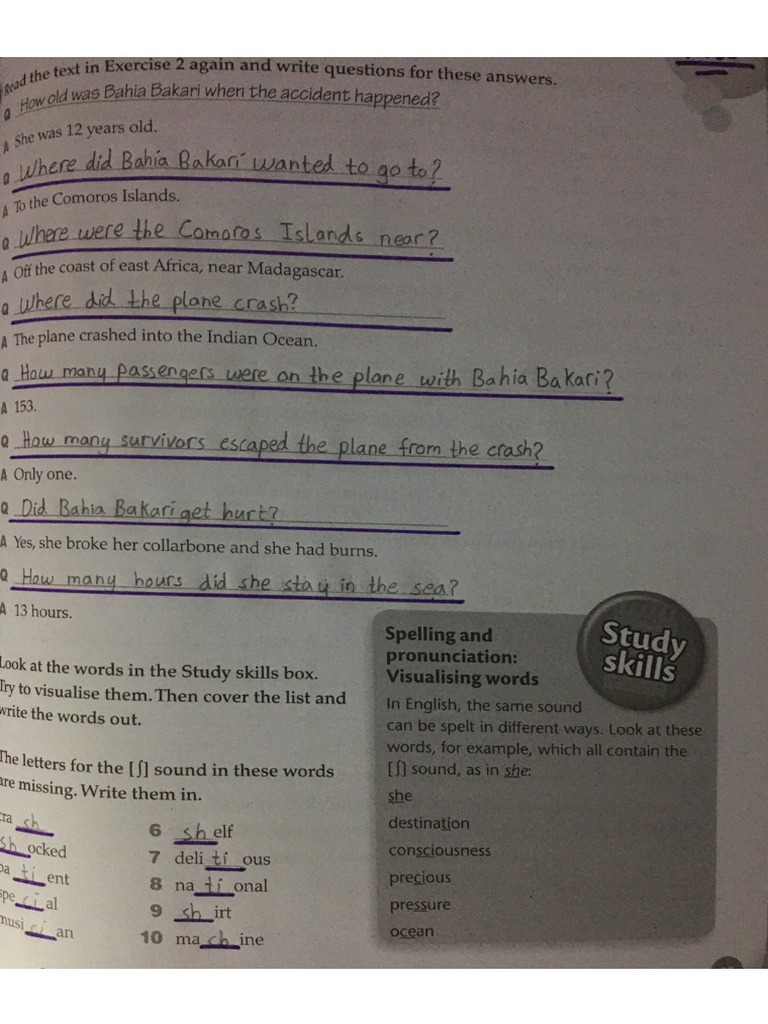 Read the text in Exercise 2 again and write questions for these answers.
Q How old was Bahia Bakari when the accident happened?
A She was 12 years old.
Q Where did Bahia Bakari wanted to go to?
A To the Comoros Islands.
Q Where were the Comoros Islands near?
A Off the coast of east Africa, near Madagascar.
Q Where did the plane crash?
A The plane crashed into the Indian Ocean.
Q How many passengers were on the plane with Bahia Bakari?
A 153.
Q How many survivors escaped the plane from the crash?
A Only one.
Q Did Bahia Bakari get hurt?
A Yes, she broke her collarbone and she had burns.
Q How many hours did she stay in the sea?
A 13 hours.
Look at the words in the Study skills box.
Try to visualise them. Then cover the list and
write the words out.
The letters for the [ʃ] sound in these words
are missing. Write them in.
cra sh
sh ocked
pa ti ent
spe ci al
musi ci an
6 sh elf
7 deli ti ous
8 na ti onal
9 sh irt
10 ma ch ine
Study
skills
Spelling and
pronunciation:
Visualising words
In English, the same sound
can be spelt in different ways. Look at these
words, for example, which all contain the
[ʃ] sound, as in she:
she
destination
consciousness
precious
pressure
ocean